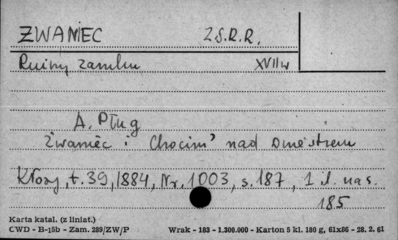 ŻWANIEC Z.S.R.R.
Ruiny zamku XVII w
A. Pług
Żwaniec i Chocim nad Dniestrem
Kłosy, t. 39, 1884, Nr. 1003, s. 187, 1 il. na s.
185
Karta katal. (z liniat.)
CWD - B-15b - Zam. 289/ZW/P Wrak - 183 - 1.300.000 - Karton 5 kl. 180 g, 61x86 - 28. 2. 61